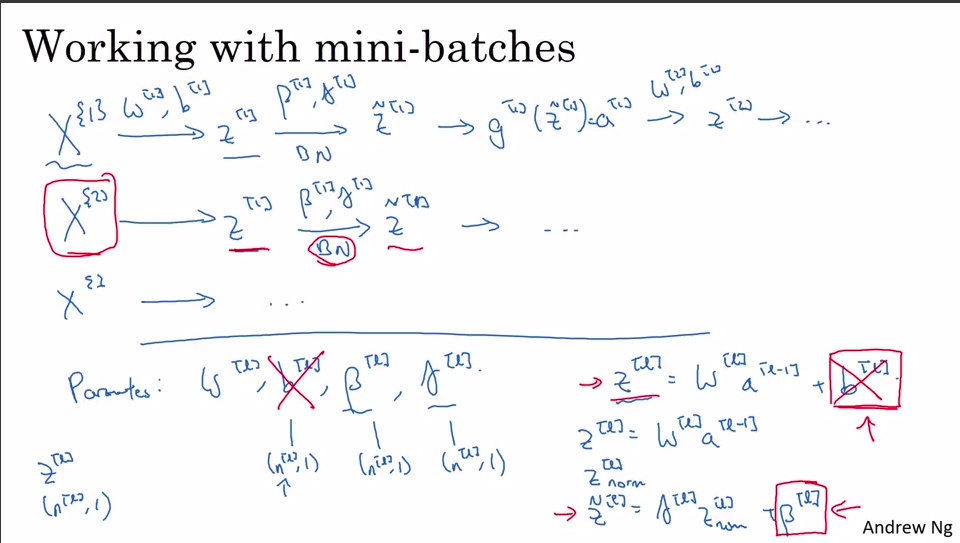 Working with mini-batches
X^{1} →(W^[1], b^[1]) z^[1] →(β^[1], γ^[1] BN) z̃^[1] → g^[1](z̃^[1]) = a^[1] →(W^[2], b^[2]) z^[2] → ...
X^{2} → z^[1] →(β^[1], γ^[1] BN) z̃^[1] → ...
X^{3} → ...
Parameters: W^[l], b^[l], β^[l], γ^[l].
(n^[l], 1) (n^[l], 1) (n^[l], 1)
z^[l]
(n^[l], 1)
→ z^[l] = W^[l] a^[l-1] + b^[l].
z^[l] = W^[l] a^[l-1]
z^[l]_norm
→ z̃^[l] = γ^[l] z^[l]_norm + β^[l] ←
Andrew Ng